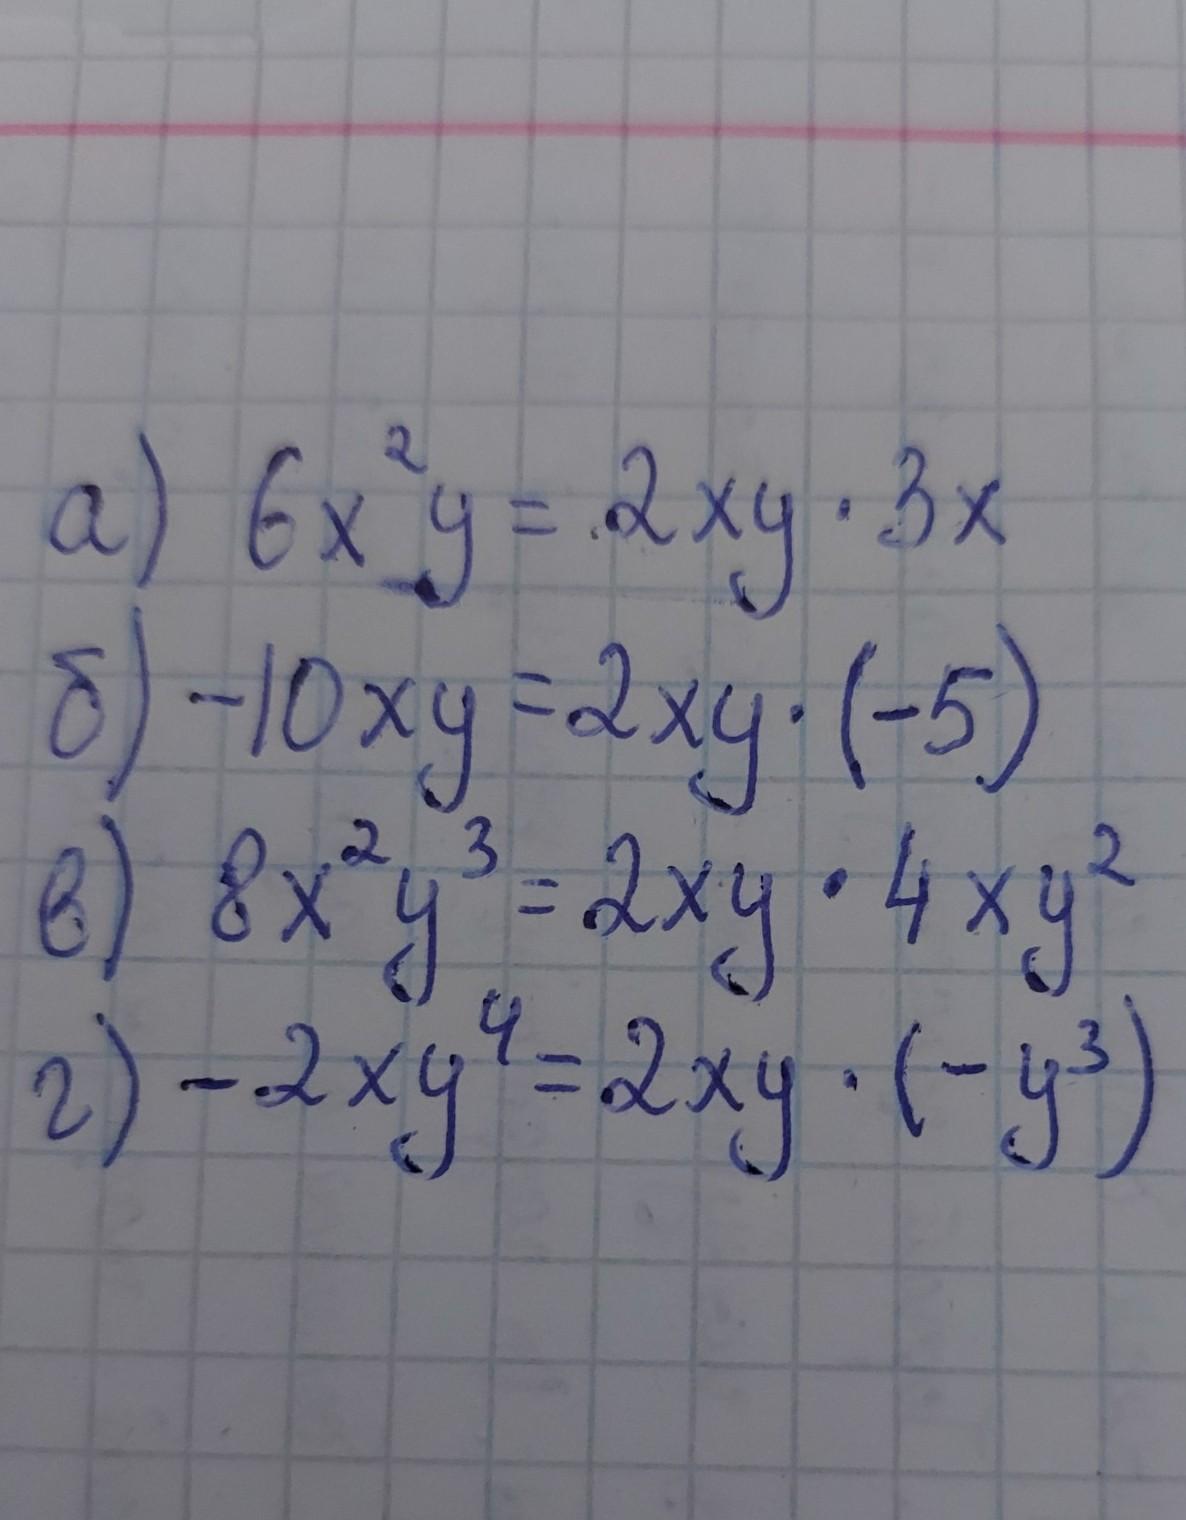 а) 6x²y = 2xy · 3x
б) -10xy = 2xy · (-5)
в) 8x²y³ = 2xy · 4xy²
г) -2xy⁴ = 2xy · (-y³)